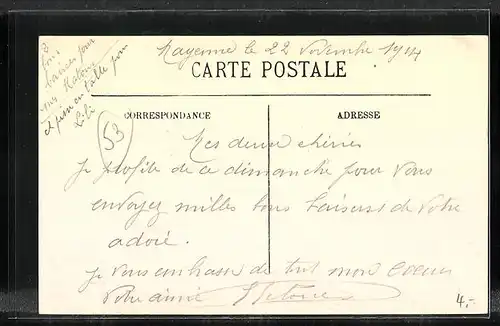 Mayenne le 22 Novembre 1914
CARTE POSTALE
CORRESPONDANCE
ADRESSE
53
Mes deux chéries
Je profite de ce dimanche pour vous
envoyez milles bons baisers de votre
adoré.
Je vous embrasse de tout mon coeur
Votre aimé
2
bons
baisers pour
et puis un
pour
Lili
4,-